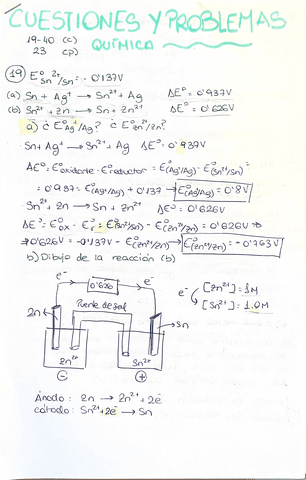 CUESTIONES Y PROBLEMAS
19-40 (c)
23 (p)
QUÍMICA
19) E°Sn²⁺/Sn: -0'137V
(a) Sn + Ag⁺ → Sn²⁺ + Ag ΔE° = 0'937V
(b) Sn²⁺ + Zn → Sn + Zn²⁺ ΔE° = 0'626V
a) ¿E°Ag⁺/Ag? ¿E°Zn²⁺/Zn?
Sn + Ag⁺ → Sn²⁺ + Ag ΔE° = 0'937V
ΔE° = E°oxidante - E°reductor = E°(Ag⁺/Ag) - E°(Sn²⁺/Sn) =
= 0'937 = E°(Ag⁺/Ag) + 0'137 → E°(Ag⁺/Ag) = 0'8V
Sn²⁺ + Zn → Sn + Zn²⁺ ΔE° = 0'626V
ΔE° = E°ox - E°r = E°(Sn²⁺/Sn) - E°(Zn²⁺/Zn) = 0'626V ⇒
⇒ 0'626V = -0'137V - E°(Zn²⁺/Zn) → E°(Zn²⁺/Zn) = -0'763V
b) Dibujo de la reacción (b)
e⁻ 0'626 e⁻
e⁻ [Zn²⁺] = 1M
[Sn²⁺] = 1.0M
Zn Puente de sal Sn
Zn²⁺ Sn²⁺
- +
Ánodo: Zn → Zn²⁺ + 2e⁻
cátodo: Sn²⁺ + 2e⁻ → Sn